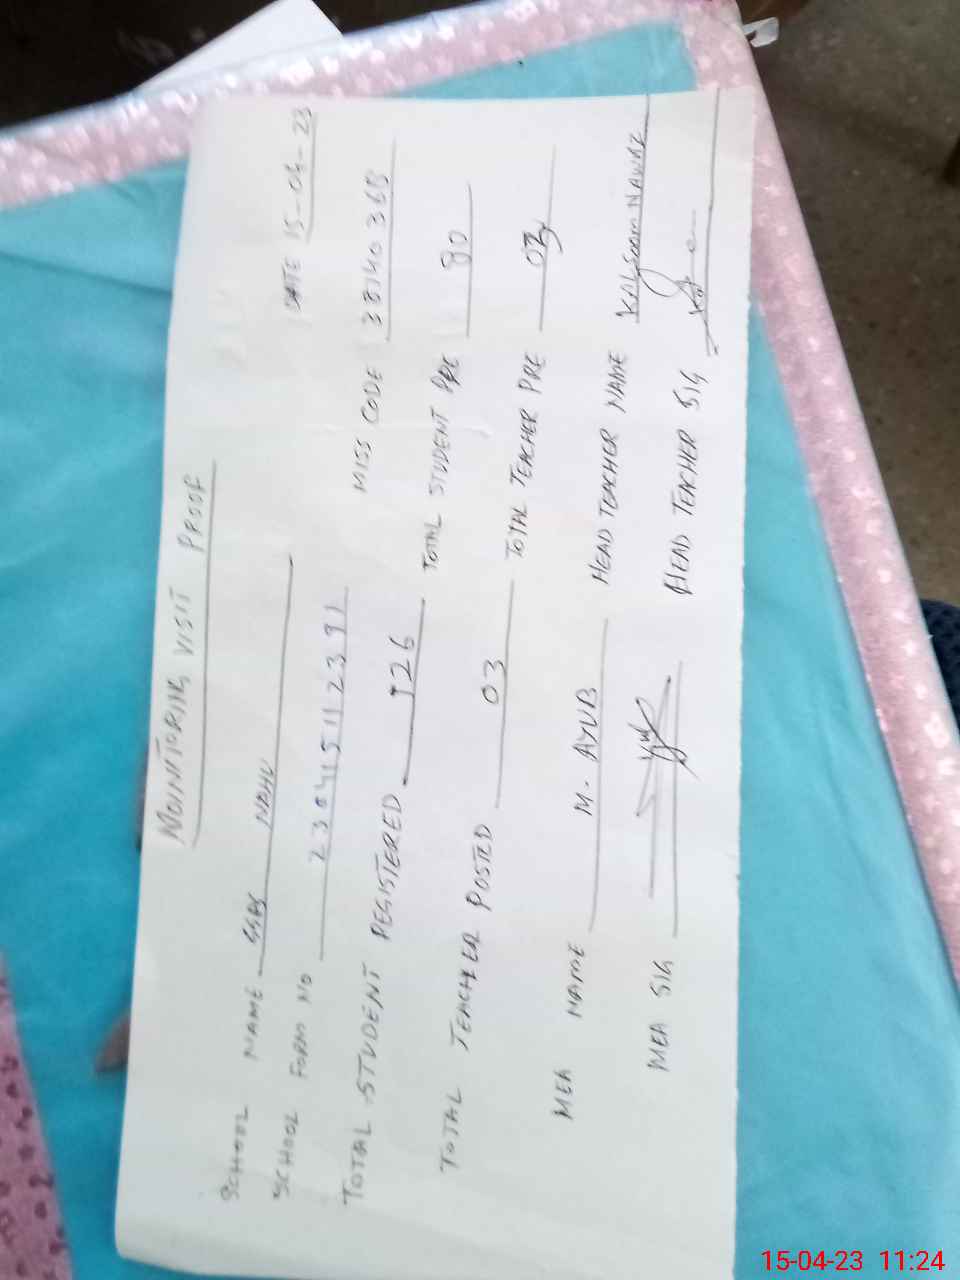 MOINITORIIG VISIT PROOF
DATE 15-04-23
SCHOOL NAME GGPS NDHU
MISS CODE 38140368
SCHOOL FORM NO 230415112391
TOTAL STUDENT REGISTERED 126 TOTAL STUDENT PRE 80
TOTAL TEACHER POSTED 03 TOTAL TEACHER PRE
MEA NAME M. AYUB HEAD TEACHER NAME KALSOOM NAWAZ
MEA SIG HEAD TEACHER SIG
15-04-23 11:24